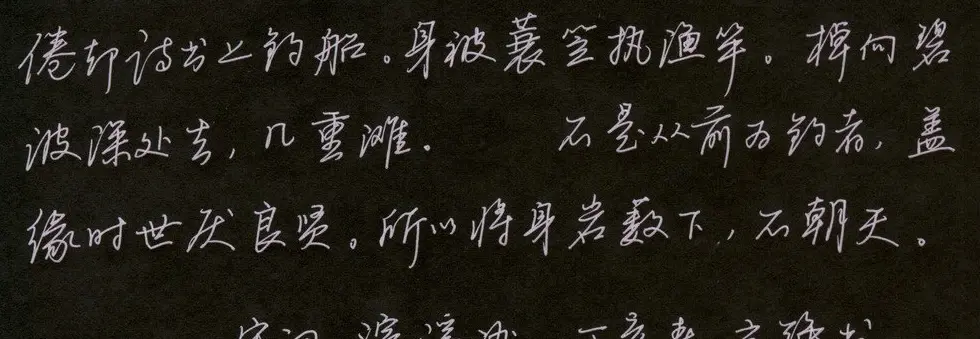 倦却诗书上钓船。身被蓑笠执渔竿。棹向碧
波深处去，几重滩。　　不是从前为钓者，盖
缘时世厌良贤。所以将身岩薮下，不朝天。
宋词 浣溪沙